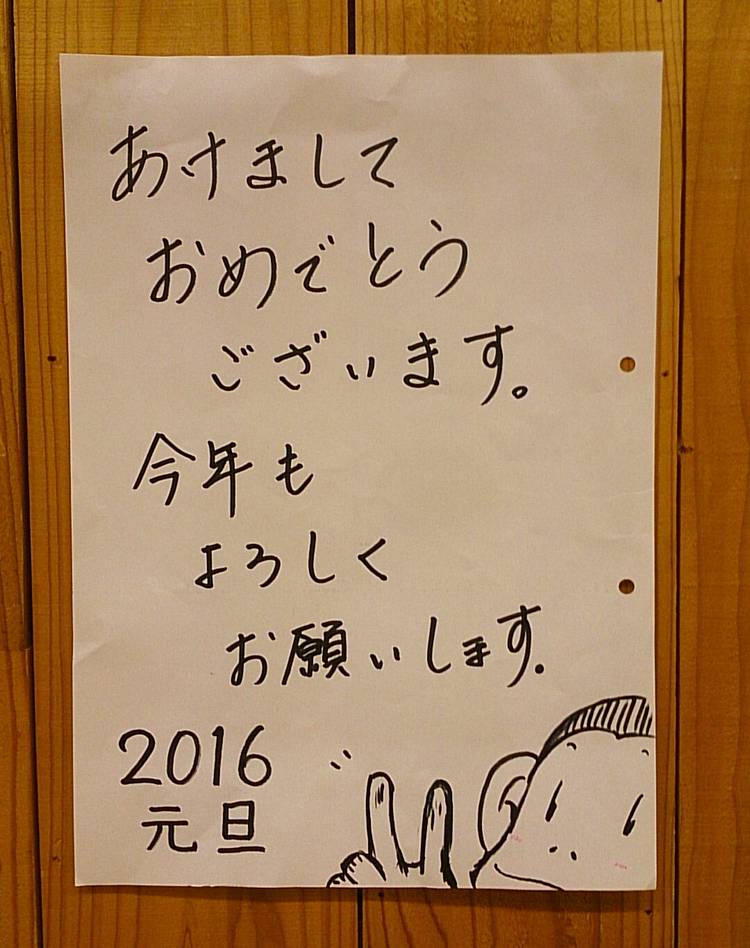 あけまして
おめでとう
ございます。
今年も
よろしく
お願いします。
2016
元旦